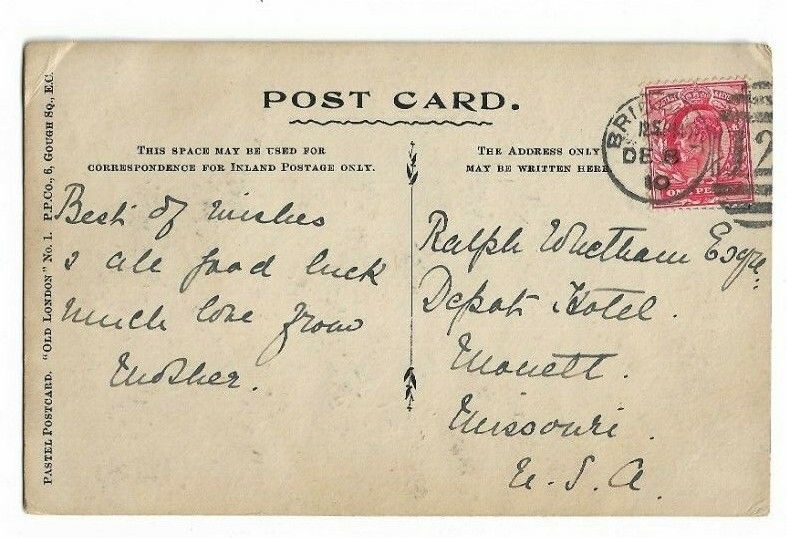 POST CARD.
THIS SPACE MAY BE USED FOR
CORRESPONDENCE FOR INLAND POSTAGE ONLY.
THE ADDRESS ONLY
MAY BE WRITTEN HERE
PASTEL POSTCARD. "OLD LONDON" No. 1. P.P.Co., 6, GOUGH SQ., E.C.
Best of wishes
& all good luck
much love from
Mother.
Ralph Whetham Esqre.
Depot Hotel.
Monett.
Missouri.
U.S.A.
DE 8
10